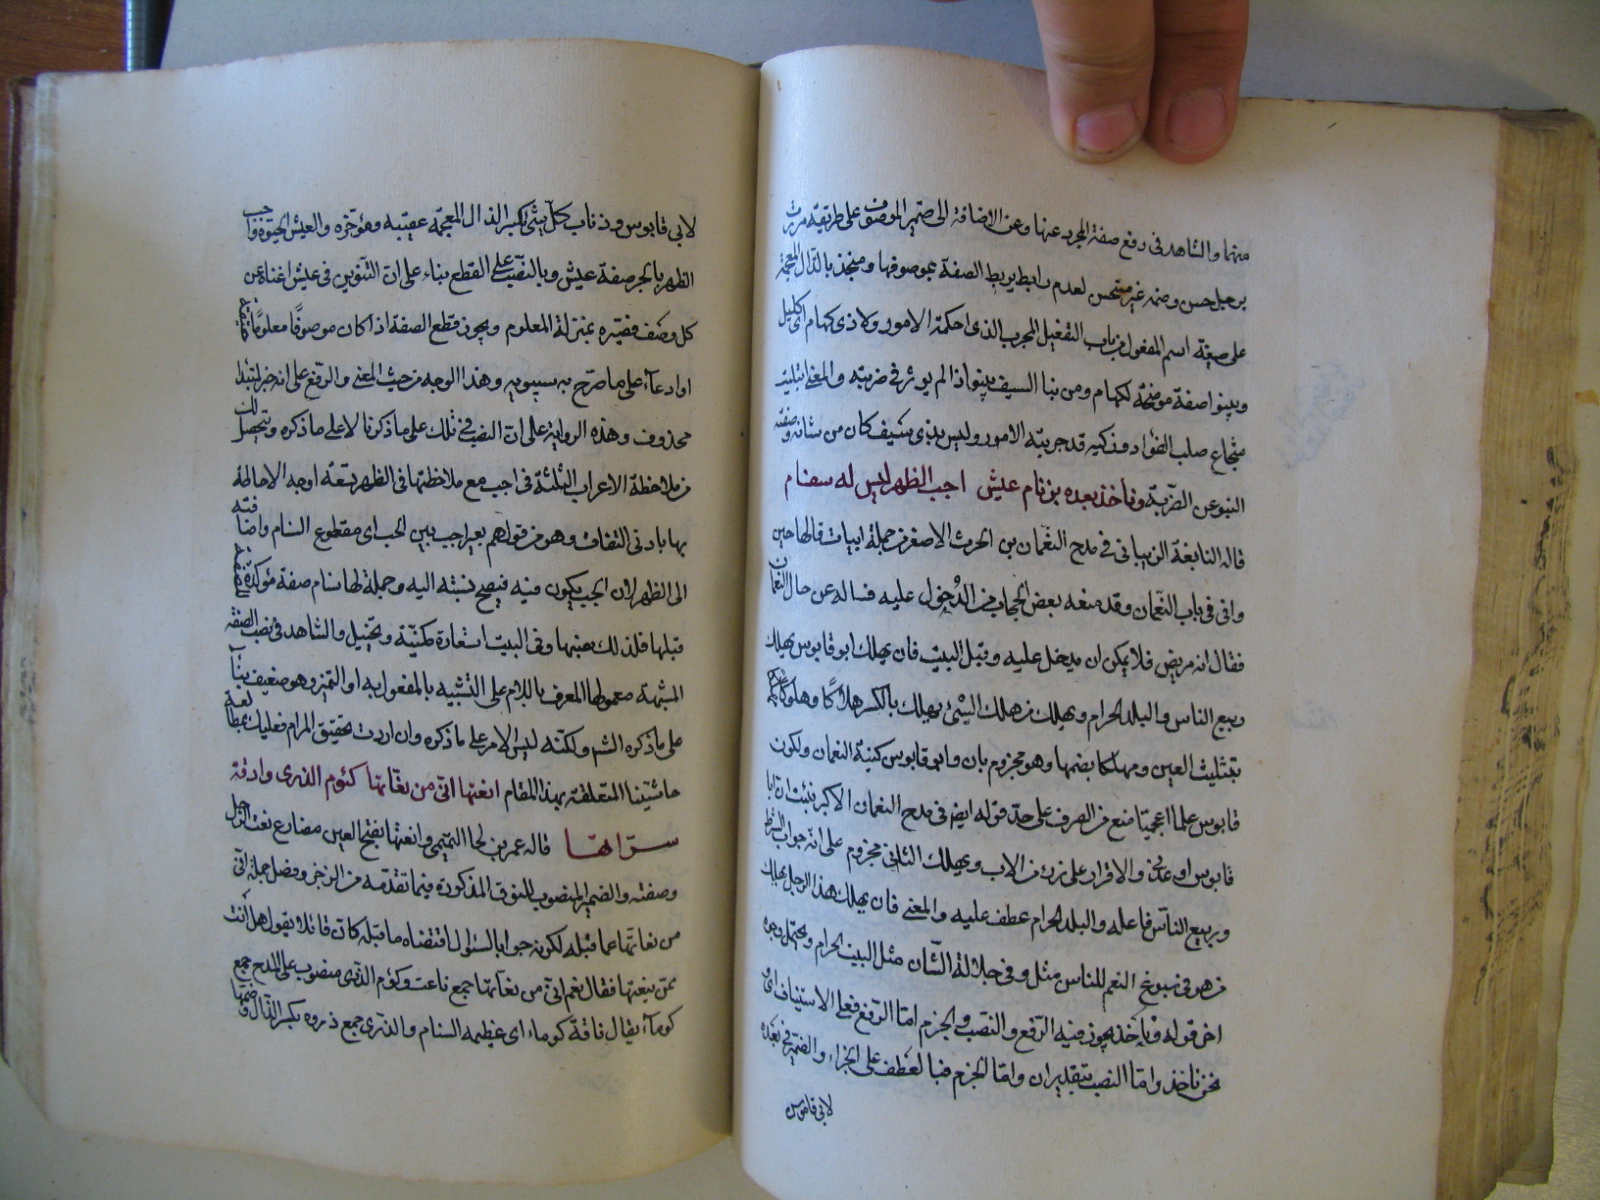 منهما والشاهد فى رفع صفة المجرد عنها وعن الاضافة الى ضمير الموصوف على طريقة مررت
برجل حسن وضمه غير مستحسن لعدم رابط يربط الصفة بموصوفها ومنجذ بالذال المعجمة
على صيغة اسم المفعول من باب التفعيل المجرب الذى احكمته الامور ولا ذى كهام اى كليل
وينبو صفة موضحة لكهام ومن نبا السيف ينبو اذا لم يؤثر فى ضريبته والمعنى ابتليت
بشجاع صلب الفؤاد وذكيه قد جربته الامور وليس بذى سيف كان من شانه وصفته
النبو عن الضريبة ونأخذ بعده بزنام عيش اجب الظهر ليس له سنام
قاله النابغة الذبيانى فى مدح النعمان بن الحرث الاصغر من جملة ابيات قالها حين
وافى فى باب النعمان وقد منعه بعض الحجاب من الدخول عليه فساله عن حال النعمان
فقال انه مريض فلا يمكن ان يدخل عليه وقبل البيت فان يهلك ابو قابوس يهلك
ربيع الناس والبلد الحرام ويهلك من هلك الشئ يهلك بالكسر هلاكا وهلوكا
بتثليث العين ومهلكا بضمها وهو مجزوم بان وابو قابوس كنية النعمان ولكون
قابوس علما اعجميا منع من الصرف على حد قوله ايضا فى مدح النعمان الاكبر نبئت ان ابا
قابوس اوعدنى والاقرار على زئر من الاب ويهلك الثانى مجزوم على انه جواب الشرط
وربيع الناس فاعله والبلد الحرام عطف عليه والمعنى فان يهلك هذا الرجل يهلك
من هو فى سبوغ النعم للناس مثل وفى جلالة الشان مثل البيت الحرام ويحتمل وجوه
اخر قوله ونأخذ يجوز فيه الرفع والنصب والجزم اما الرفع فعلى الاستيناف اى و
نحن ناخذ واما النصب بتقدير ان واما الجزم فبالعطف على الجزاء والضمير فى بعده
لابى قابوس
لابى قابوس وذناب كل شئ بكسر الذال المعجمة عقيبه وهو مؤخره والعيش الحيوة واجب
الظهر بالجر صفة عيش وبالنصب على القطع بناء على ان التنوين فى عيش اغناه عن
كل وصف فصيره بمنزلة المعلوم ويجوز قطع الصفة اذا كان موصوفا معلوما
او ادعاء على ما صرح به سيبويه وهذا الوجه من حيث المعنى والرفع على انه خبر لمبتدا
محذوف وهذه الرواية على ان النصب فى تلك على ما ذكرنا لا على ما ذكره ويتحصل لك
من ملاحظة الاعراب الثلثة فى اجب مع ملاحظتها فى الظهر تسعة اوجه الاحاطة
بها بادنى التفات وهو من قولهم بعير اجب بين الجب اى مقطوع السنام واضافته
الى الظهر لان الجب يكون فيه فيصح نسبته اليه وجملة لها سنام صفة مؤكدة
قبلها فلذلك بعينها وفى البيت استعارة مكنية وتخييل والشاهد فى نصب الصفة
المشبهة معمولها المعرف باللام على التشبيه بالمفعول به او التميز وهو ضعيف بناء
على ما ذكره الشم ولكنه ليس الامر على ما ذكره وان اردت تحقيق المرام فعليك بمطالعة
حاشيتنا المتعلقة بهذا المقام انعتها انى من نعاتها كئوم الذرى وادقة
سراتها قاله عمر بن لجا التميمى وانعتها بفتح العين مضارع نعت الرجل
وصفته والضمير المنصوب للنوق المذكورة فيما تقدمه من الرجز وفصل جملة انى
من نعاتها عما قبله لكونه جوابا لسؤال اقتضاه ما قبله كان قائلا يقول اهل انت
ممن ينعتها فقال نعم انى من نعاتها جمع ناعت وكوم الذرى منصوب على المدح جمع
كوماء يقال ناقة كوماء اى عظيمة السنام والذرى جمع ذروه بكسر الذال وضمها